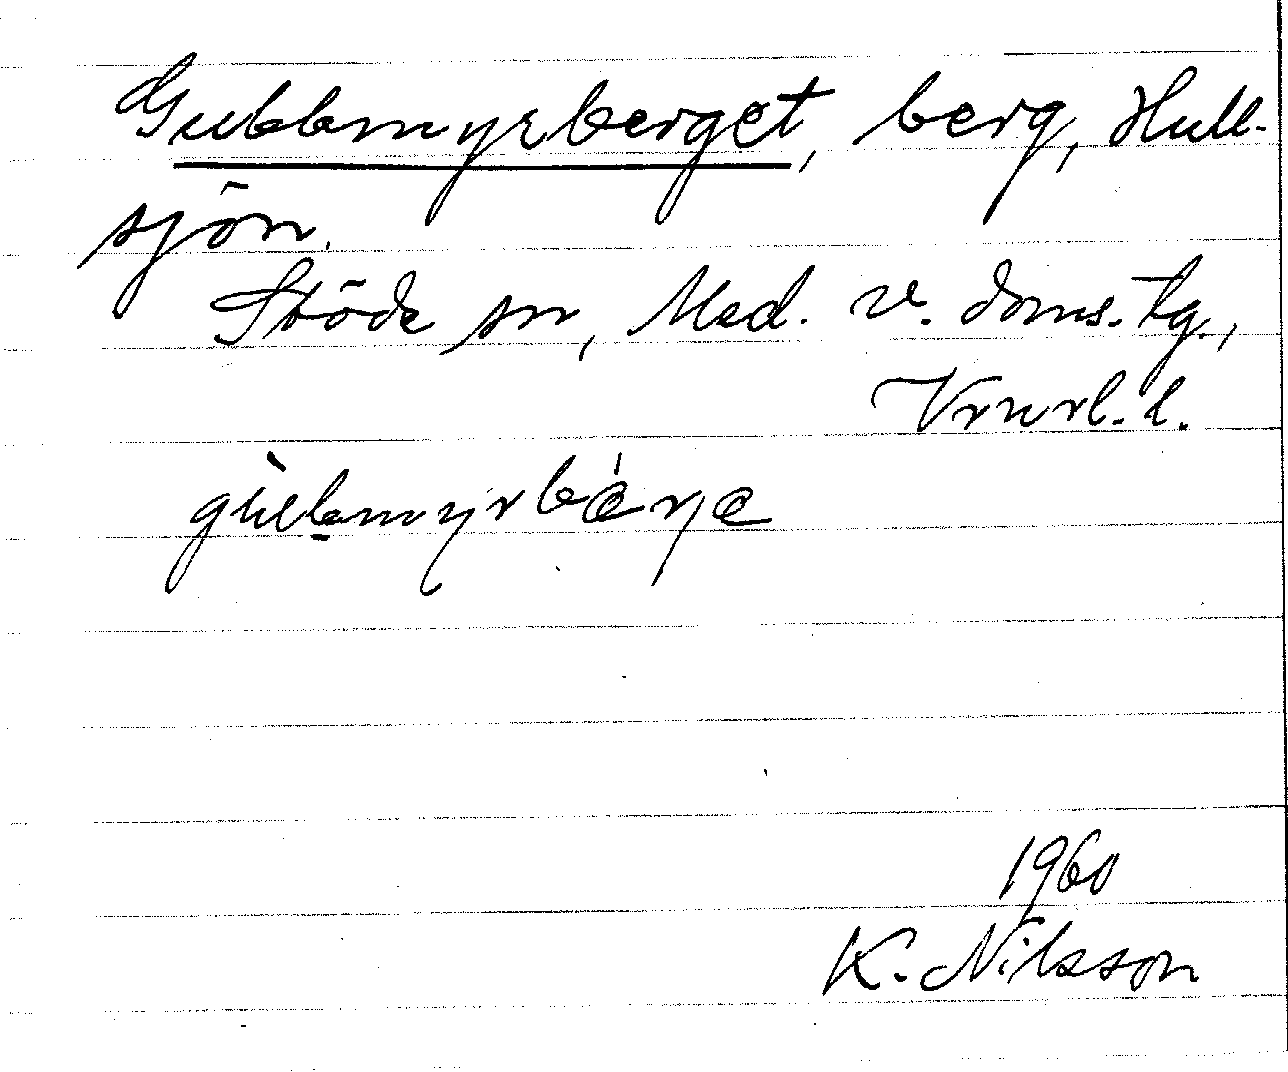 Gubbmyrberget, berg, Hull-
sjön.
Stöde sn, Med. v. doms. tg.,
Vrnrl. l.
gùbmyrbárye
1960
K. Nilsson